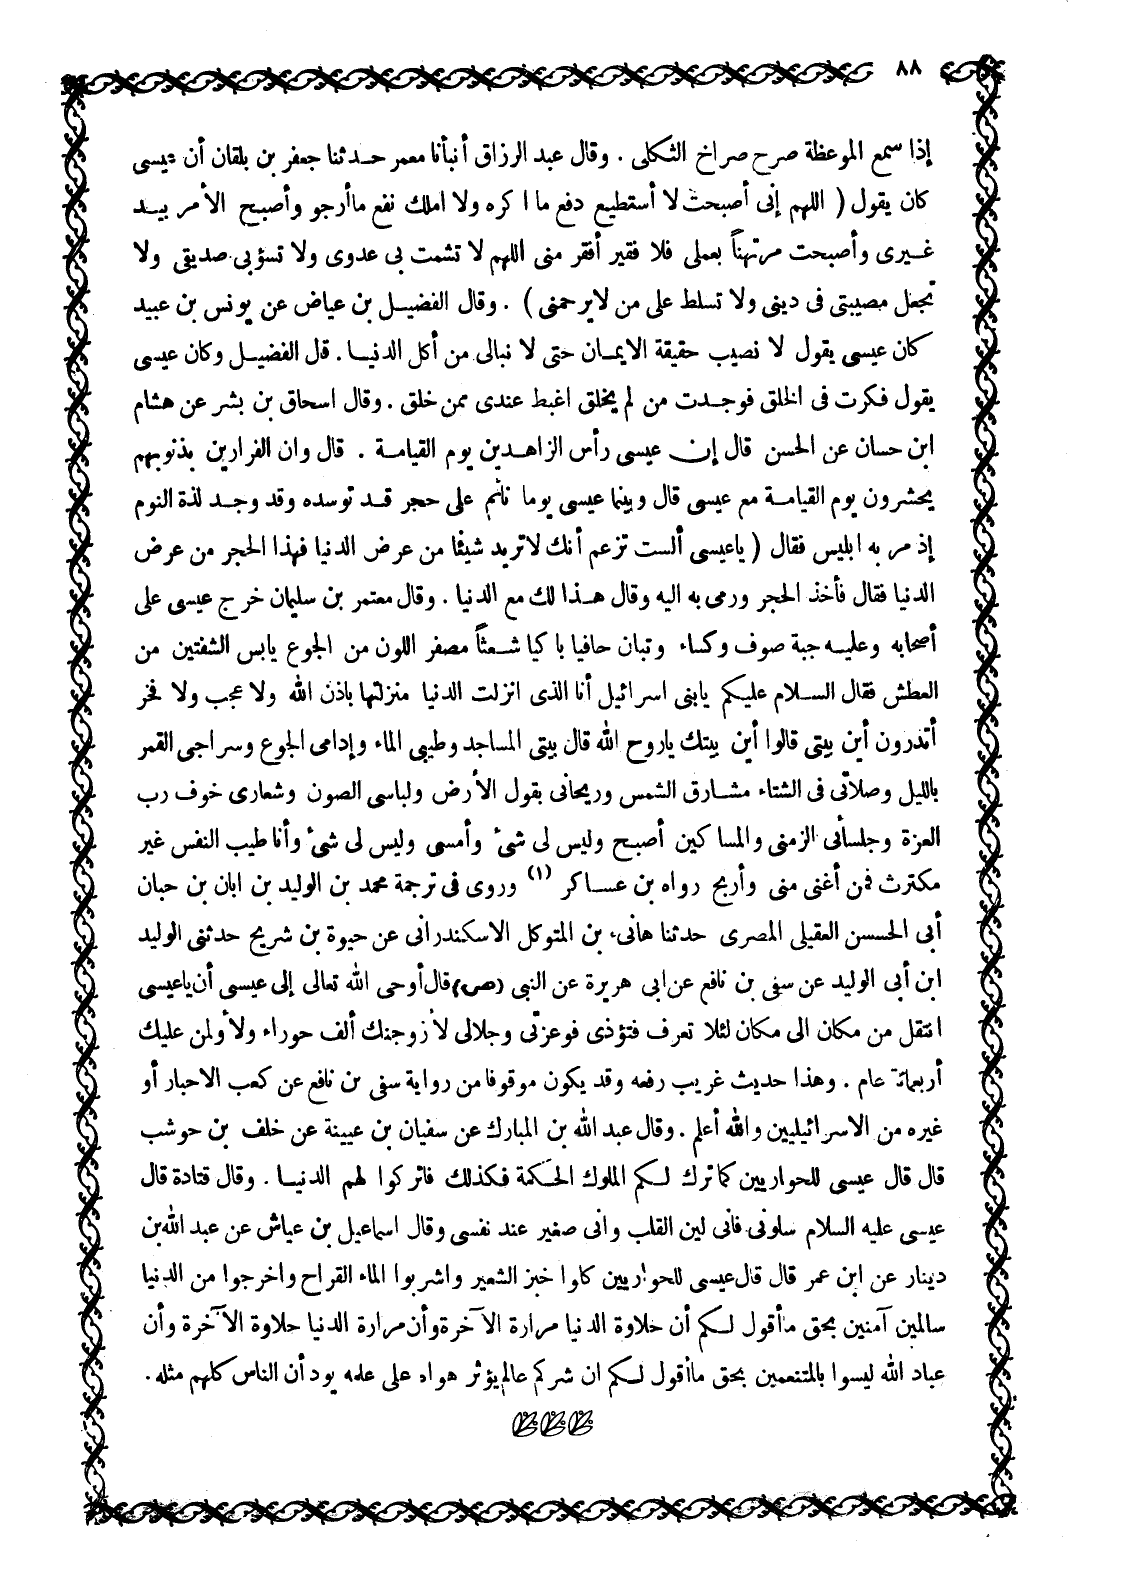 ٨٨
إذا سمع الموعظة صرح صراخ الثكلى . وقال عبد الرزاق أنبأنا معمر حدثنا جعفر بن بلقان أن عيسى
كان يقول ( اللهم إنى أصبحت لا أستطيع دفع ما اكره ولا املك نفع ماأرجو وأصبح الأمر بيد
غيرى وأصبحت مرتهناً بعملى فلا فقير أفقر منى اللهم لا تشمت بى عدوى ولا تسؤبى صديقى ولا
تجعل مصيبتى فى دينى ولا تسلط على من لايرحمنى ) . وقال الفضيل بن عياض عن يونس بن عبيد
كان عيسى يقول لا نصيب حقيقة الايمان حتى لا نبالى من أكل الدنيا . قل الفضيل وكان عيسى
يقول فكرت فى الخلق فوجدت من لم يخلق اغبط عندى ممن خلق . وقال اسحاق بن بشر عن هشام
ابن حسان عن الحسن قال إن عيسى رأس الزاهدين يوم القيامة . قال وان الفرارين بذنوبهم
يحشرون يوم القيامة مع عيسى قال وبينما عيسى يوما نائم على حجر قد توسده وقد وجد لذة النوم
إذ مر به ابليس فقال ( ياعيسى ألست تزعم أنك لاتريد شيئا من عرض الدنيا فهذا الحجر من عرض
الدنيا فقال فأخذ الحجر ورمى به اليه وقال هذا لك مع الدنيا . وقال معتمر بن سليمان خرج عيسى على
أصحابه وعليه جبة صوف وكساء وتبان حافيا باكيا شعثاً مصفر اللون من الجوع يابس الشفتين من
العطش فقال السلام عليكم يابنى اسرائيل أنا الذى انزلت الدنيا منزلتها باذن الله ولا عجب ولا فخر
أتدرون أين بيتى قالوا أين بيتك ياروح الله قال بيتى المساجد وطيبى الماء وإدامى الجوع وسراجى القمر
بالليل وصلاتى فى الشتاء مشارق الشمس وريحانى بقول الأرض ولباسى الصون وشعارى خوف رب
العزة وجلسأنى الزمنى والمساكين أصبح وليس لى شىء وأمسى وليس لى شىء وأنا طيب النفس غير
مكترث فمن أغنى منى وأربح رواه بن عساكر (١) وروى فى ترجمة محمد بن الوليد بن ابان بن حبان
أبى الحسسن العقيلى المصرى حدثنا هانىء بن المتوكل الاسكندرانى عن حيوة بن شريح حدثنى الوليد
ابن أبى الوليد عن سفى بن نافع عن ابى هريرة عن النبى (ص) قال أوحى الله تعالى إلى عيسى أن ياعيسى
انتقل من مكان الى مكان لئلا تعرف فتؤذى فوعزتى وجلالى لأزوجنك ألف حوراء ولأولمن عليك
أربعمائة عام . وهذا حديث غريب رفعه وقد يكون موقوفا من رواية سفى بن نافع عن كعب الاحبار أو
غيره من الاسرائيليين والله أعلم . وقال عبد الله بن المبارك عن سفيان بن عيينة عن خلف بن حوشب
قال قال عيسى للحواريين كما ترك لكم الملوك الحكمة فكذلك فاتركوا لهم الدنيا . وقال قتادة قال
عيسى عليه السلام سلونى فانى لين القلب وانى صغير عند نفسى وقال اسماعيل بن عياش عن عبد الله بن
دينار عن ابن عمر قال قال عيسى للحواريين كاوا خبز الشعير واشربوا الماء القراح واخرجوا من الدنيا
سالمين آمنين بحق ماأقول لكم أن حلاوة الدنيا مرارة الآخرة وأن مرارة الدنيا حلاوة الآخرة وأن
عباد الله ليسوا بالمتنعمين بحق ماأقول لكم ان شركم عالم يؤثر هواه على علمه يود أن الناس كلهم مثله .